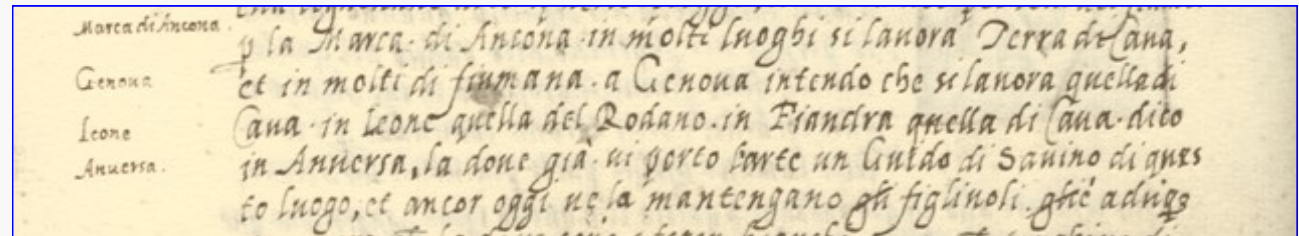 Marca di Ancona.
p la Marca di Ancona in molti luoghi si lauora Terra di Caua,
Genoua
et in molti di fiumana. a Genoua intendo che si lauora quella di
Leone
Caua. in Leone quella del Rodano. in Fiandra quella di Caua. dico
Anuersa.
in Anuersa, la doue già ui porto l'arte un Guido di Sauino di ques
to luogo, et ancor oggi ue la mantengano gli figliuoli.